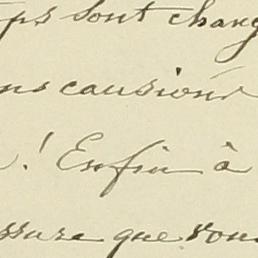 ps sont chang
ns causions
! Enfin à
ssure que vous